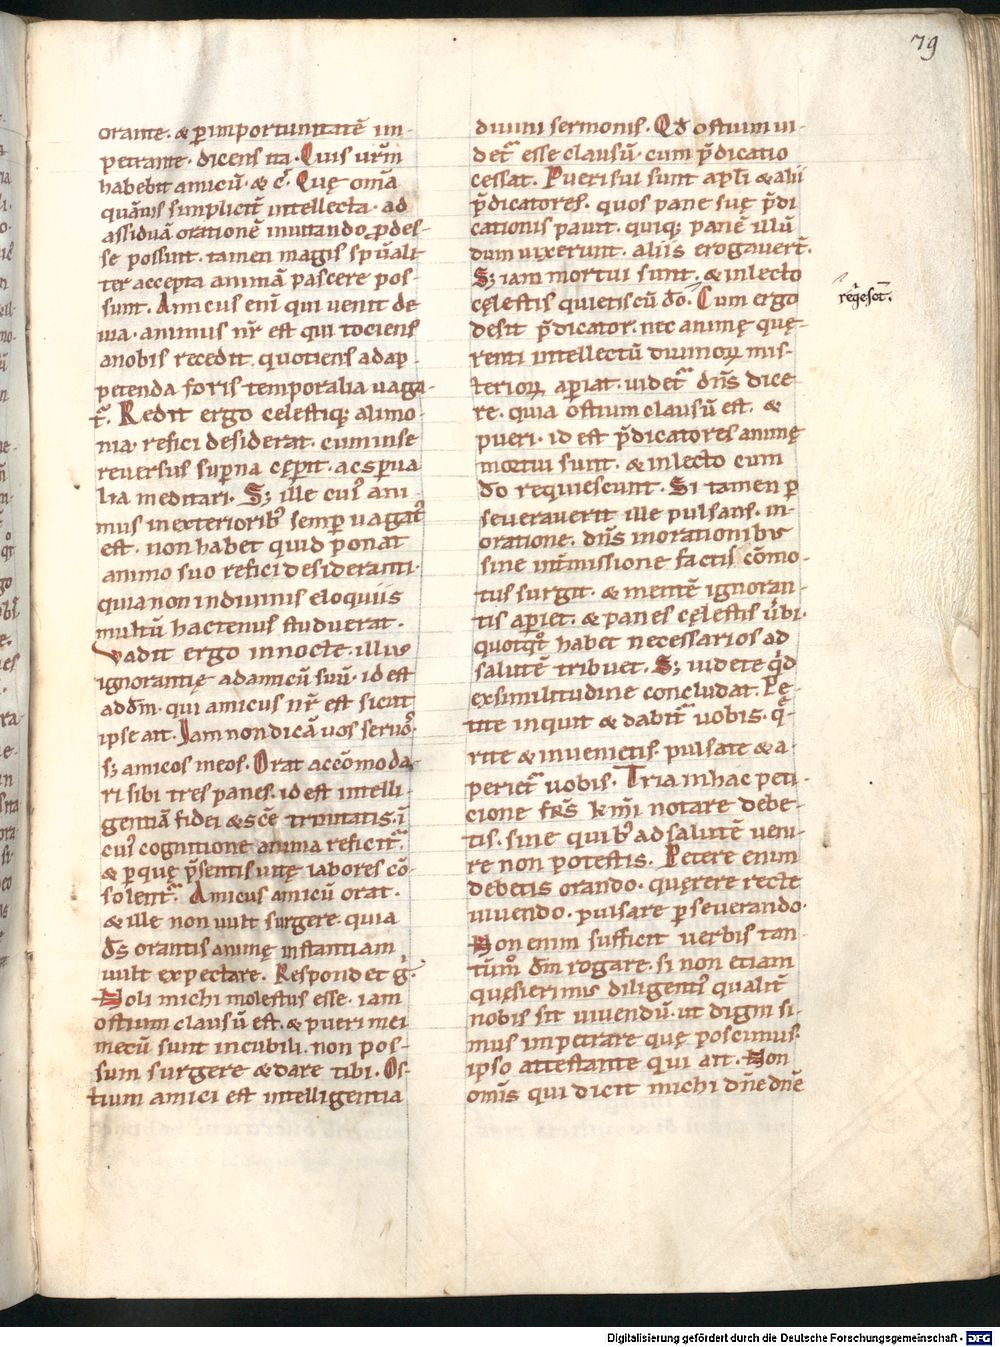 79
orante. & p̄ importunitatē im-
petrante. dicens ita. Quis ur̄m
habebit amicū. & c̄. Quę om̄ia
quāuis simplicit̄ intellecta. ad
assiduā orationē inuitando ꝓdes-
se possunt. tamen magis sp̄ualit̄
ter accepta animā pascere pos-
sunt. Amicus enī qui uenit de
uia. animus nr̄ est qui tociens
a nobis recedit. quotiens ad ap-
petenda foris temporalia uaga-
t᷑. Redit ergo celestiq; alimo-
nia. refici desiderat. cum in se
reuersus sup̄na cęp̄it. ac sp̄ua
lia meditari. S; ille cuiꝰ ani-
mus in exteriorib; semp̄ uagatꝰ
est. non habet quid ponat
animo suo refici desideranti.
quia non in diuinis eloquiis
multū hactenus studuerat.
Vadit ergo in nocte. illius
ignorantię ad amicū suū. id est
ad dm̄. qui amicus nr̄ est sicut
ipse ait. Iam non dicā uos seruoꝰ.
s; amicos meos. Orat accōmoda-
ri sibi tres panes. id est intelli-
gentiā fidei & scē trinitatis. ī
cuiꝰ cognitione anima reficit᷑.
& p̄ quę p̄sentis uitę labores cō-
solent᷑. Amicus amicū orat.
& ille non uult surgere. quia
ds̄ orantis animę instantiam
uult expectare. Respondet g̊.
Noli michi molestus esse. iam
ostium clausū est. & pueri mei
mecū sunt in cubili. non pos-
sum surgere & dare tibi. Os-
tium amici est intelligentia
diuini sermonis. Qd̄ ostium ui-
det᷑ esse clausū. cum p̄dicatio
cessat. Pueri sui sunt apl̄i & alii
p̄dicatores. quos pane suę p̄di
cationis pauit. quiq; panē illū
dum uixerunt. aliis erogauer̄t.
S; iam mortui sunt. & in lecto
cęlestis quietis cū dō. Cum ergo
req̇esct̄.
desit p̄dicator. nec animę quę-
renti intellectū diuinoꝝ mis-
terioꝝ ap̄iat. uidet᷑ dn̄s dice
re. quia ostium clausū est. &
pueri. id est p̄dicatores animę
mortui sunt. & in lecto cum
dō requiescunt. Si tamen p̄
seuerauerit ille pulsans. in
oratione. dn̄s in orationibus
sine int̄missione factis cōmo-
tus surgit. & mentē ignoran-
tis ap̄iet. & panes cęlestis u̇bi.
quotq̊t habet necessarios ad
salutē tribuet. S; uidete q̇d
ex similitudine concludat. Pę-
tite inquit & dabit᷑ uobis. q̄-
rite & inuenietis. pulsate & a-
periet᷑ uobis. Tria in hac peti-
cione frs̄ kmī notare debe-
tis. sine quib; ad salutē ueni-
re non potestis. Petere enim
debetis orando. quęrere recte
uiuendo. pulsare p̄seuerando.
Non enim sufficit uerbis tan-
tum̊ dm̄ rogare. si non etiam
quęsierimus diligent᷑ qualit̄
nobis sit uiuendū. ut digni si-
mus impetrare quę poscimus.
ipso attestante qui ait. Non
om̄is qui dicit michi dn̄e dn̄e
Digitalisierung gefördert durch die Deutsche Forschungsgemeinschaft - DFG